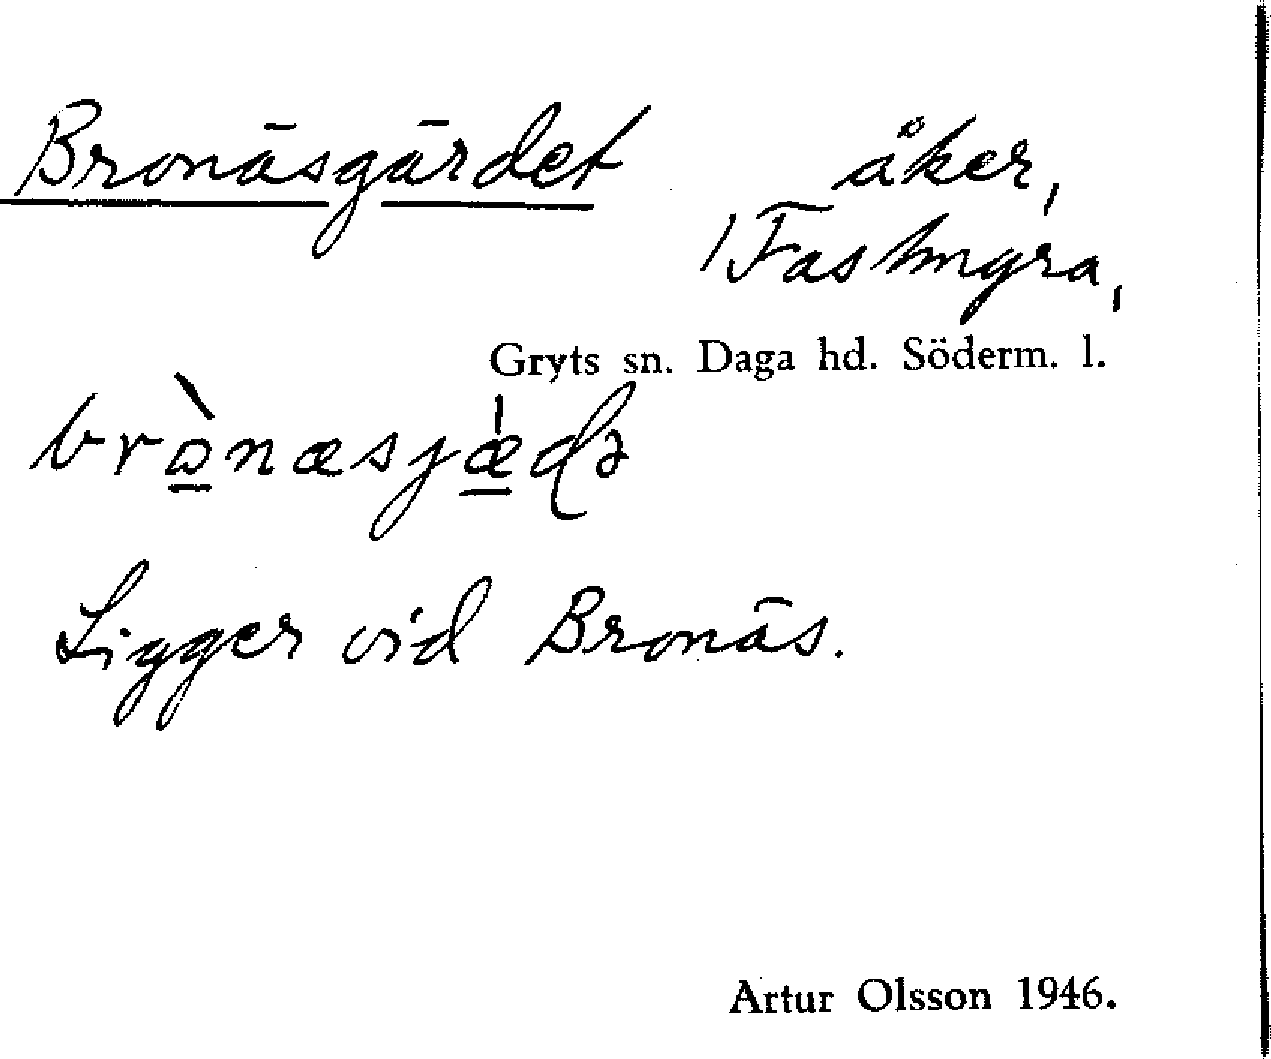 Bronäsgärdet åker,
1 Fastmyra,
Gryts sn. Daga hd. Söderm. l.
Ligger vid Bronäs.
Artur Olsson 1946.